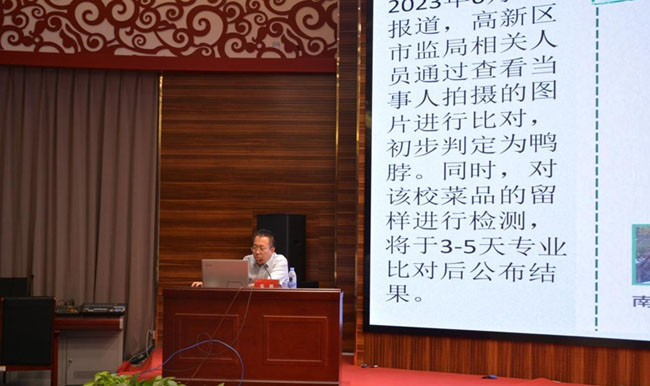 2023年6月
报道，高新区
市监局相关人
员通过查看当
事人拍摄的图
片进行比对，
初步判定为鸭
脖。同时，对
该校菜品的留
样进行检测，
将于3-5天专业
比对后公布结
果。
南